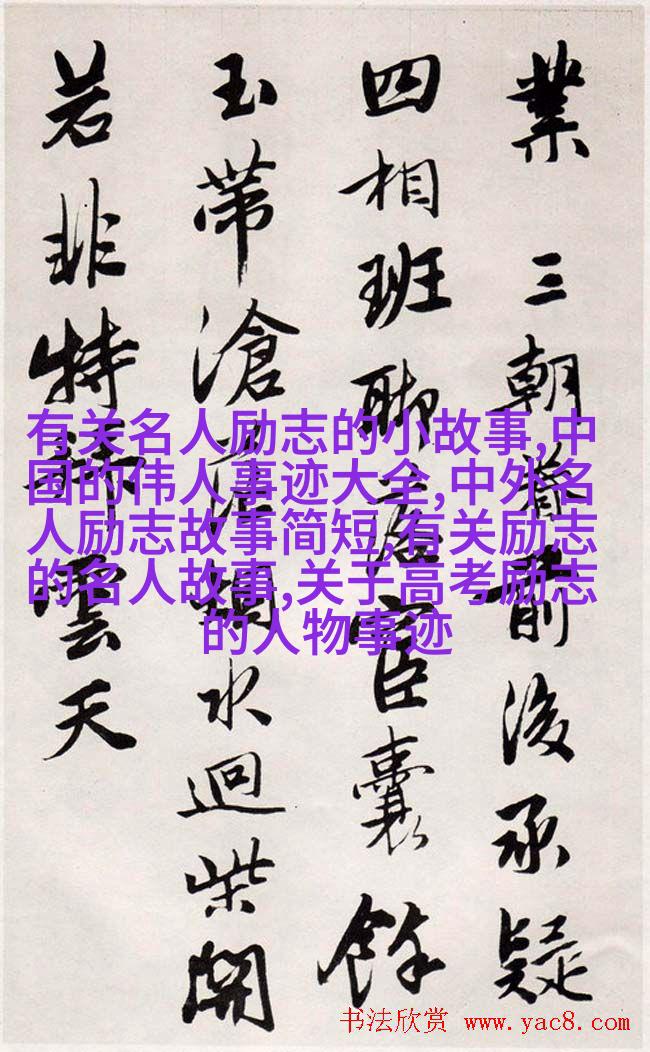 業 三朝 前後承疑
四相班 臣囊餘
玉帶滄 水迴柴開
若非特 雲天
有关名人励志的小故事,中
国的伟人事迹大全,中外名
人励志故事简短,有关励志
的名人故事,关于高考励志
的人物事迹
书法欣赏 www.yac8.com